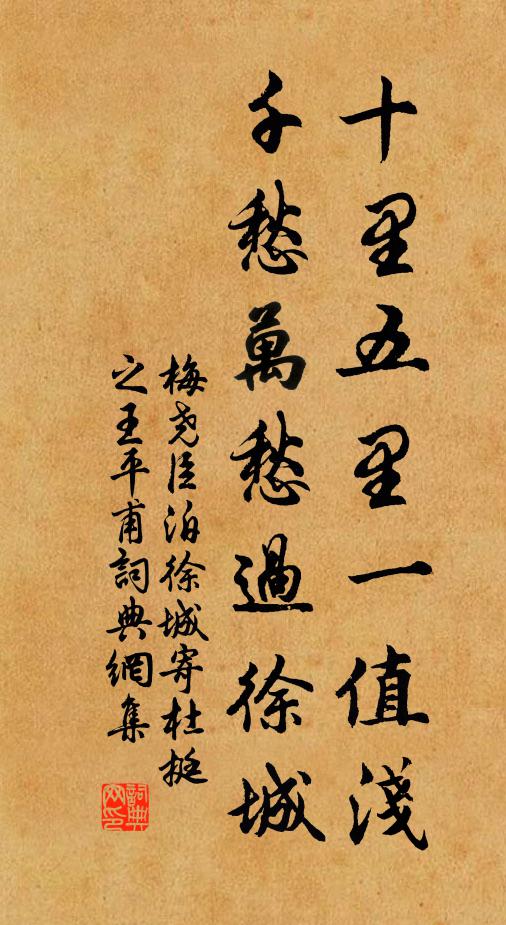 十里五里一值淺
千愁萬愁過徐城
梅堯臣泊徐城寄杜挺
之王平甫詞典網集
詞典
网印